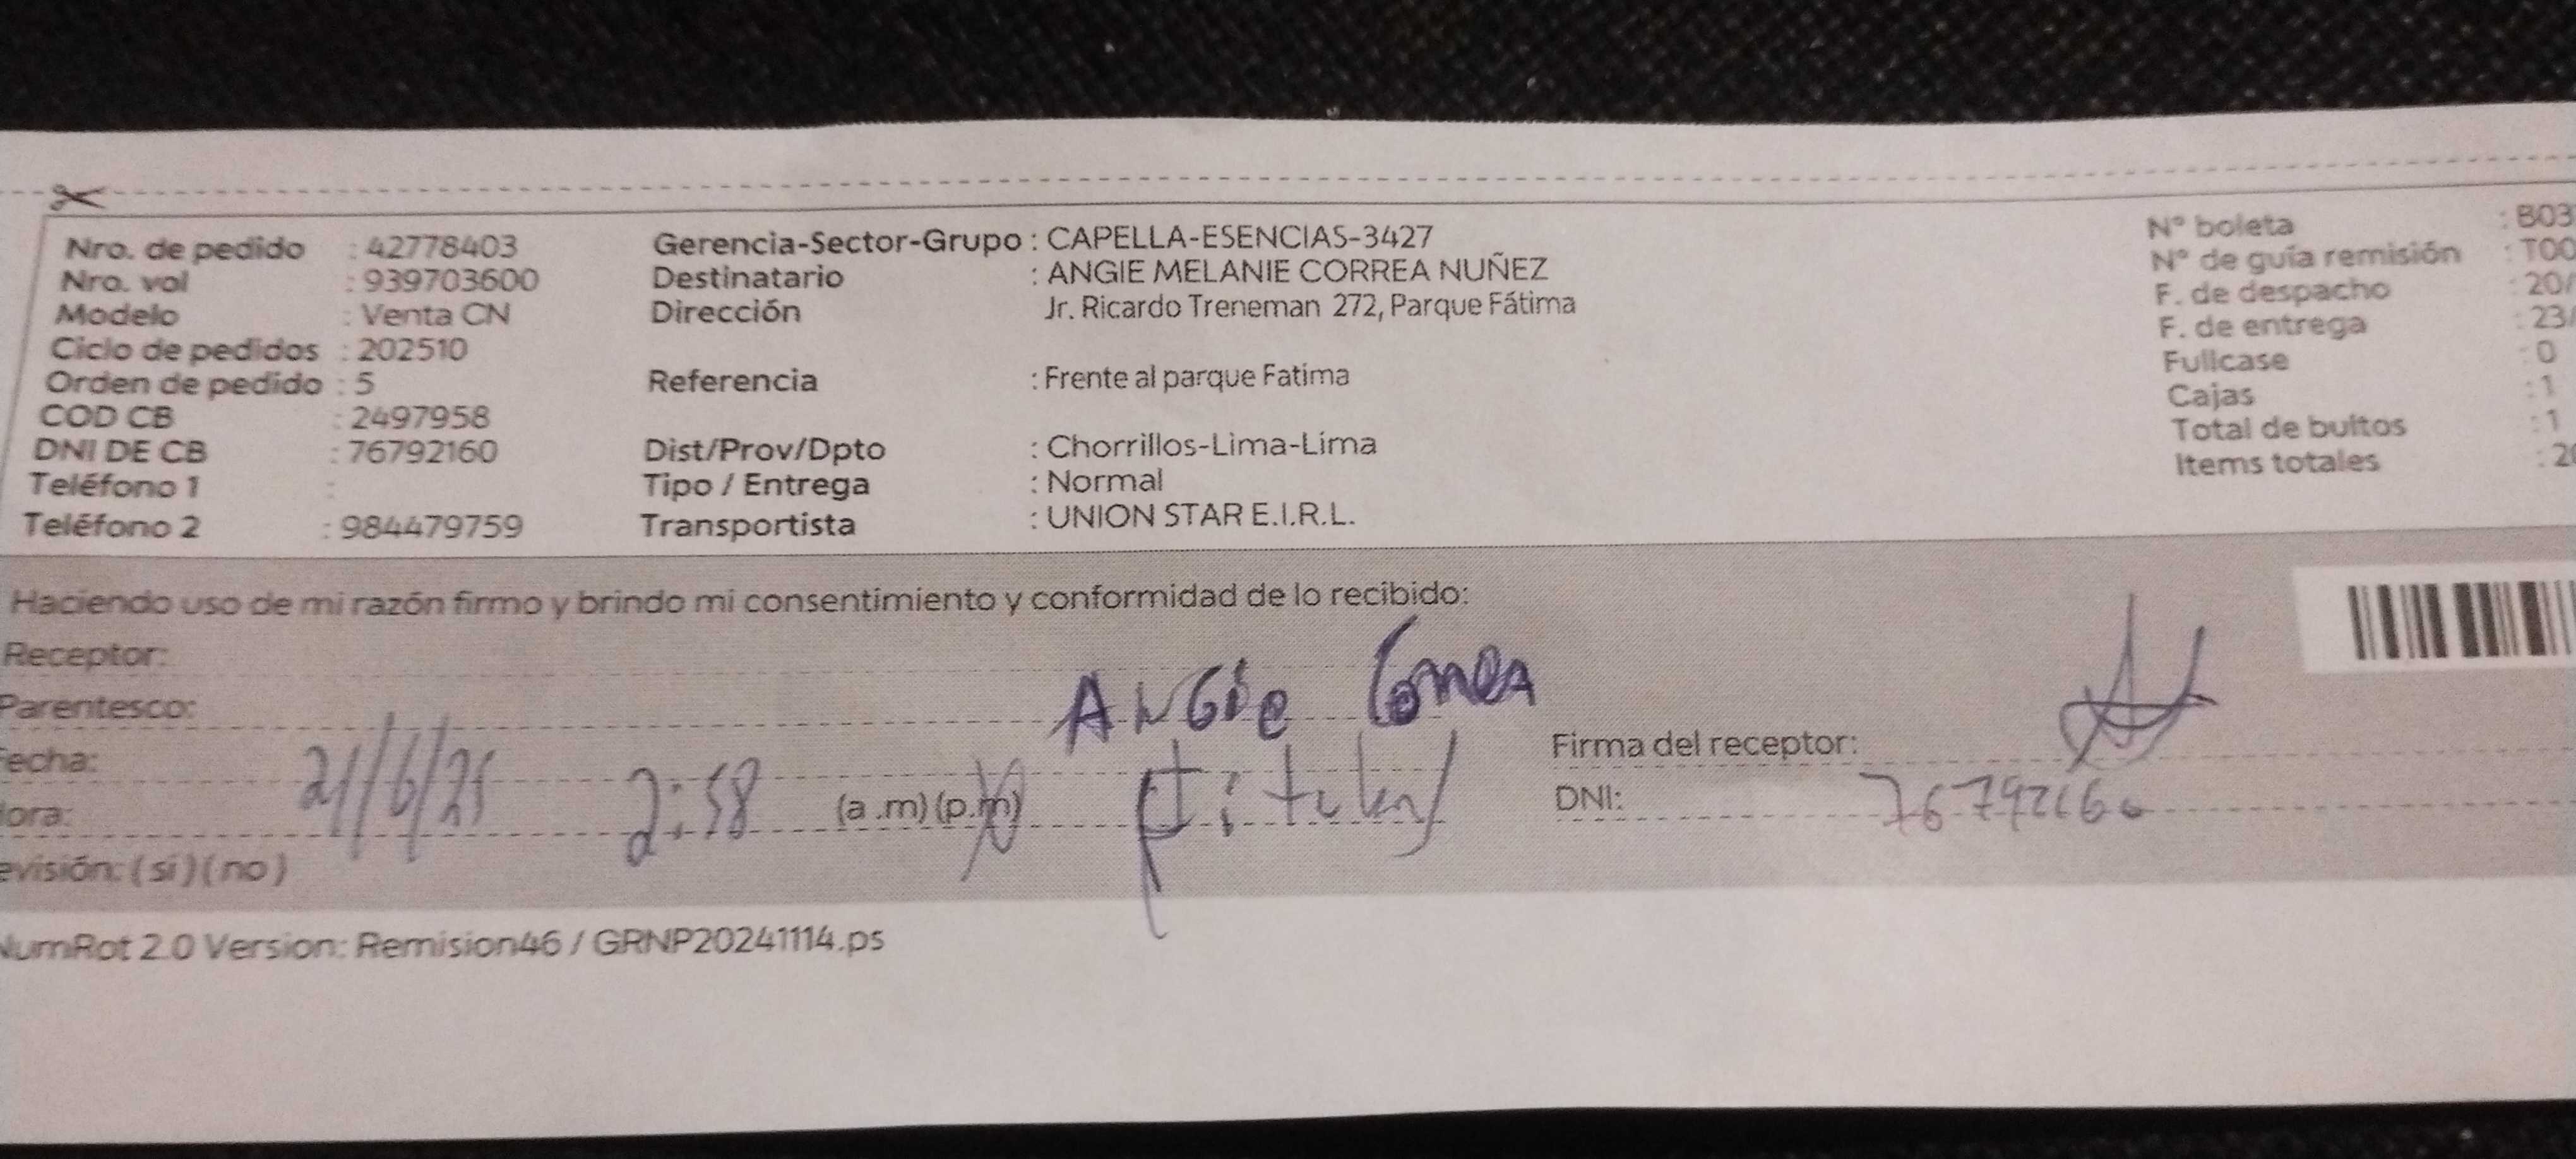 Nro. de pedido : 42778403
Nro. vol : 939703600
Modelo : Venta CN
Ciclo de pedidos : 202510
Orden de pedido : 5
COD CB : 2497958
DNI DE CB : 76792160
Teléfono 1 :
Teléfono 2 : 984479759
Gerencia-Sector-Grupo : CAPELLA-ESENCIAS-3427
Destinatario : ANGIE MELANIE CORREA NUÑEZ
Dirección Jr. Ricardo Treneman 272, Parque Fátima
Referencia : Frente al parque Fatima
Dist/Prov/Dpto : Chorrillos-Lima-Lima
Tipo / Entrega : Normal
Transportista : UNION STAR E.I.R.L.
N° boleta : B03
N° de guía remisión : T00
F. de despacho : 20/
F. de entrega : 23/
Fullcase : 0
Cajas : 1
Total de bultos : 1
Items totales : 20
Haciendo uso de mi razón firmo y brindo mi consentimiento y conformidad de lo recibido:
Receptor:
Parentesco: Angie Correa
echa: 21/6/25
ora: 2:58 (a .m) (p.m) (titular)
Firma del receptor:
DNI: 76792160
evisión: ( si ) ( no )
NumRot 2.0 Version: Remision46 / GRNP20241114.ps